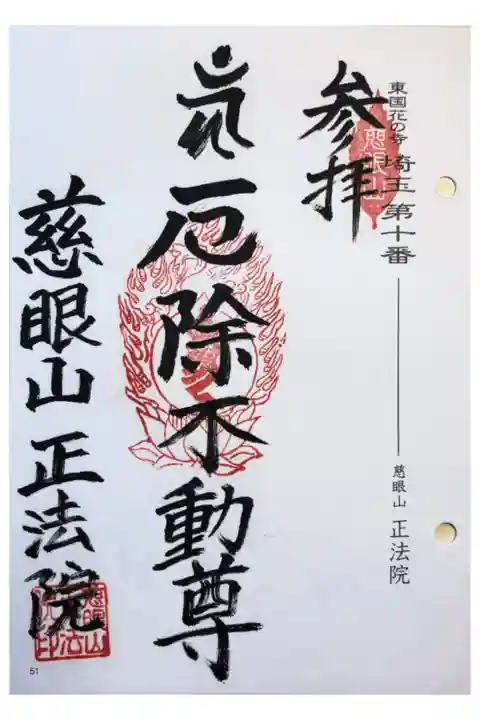 東国花の寺 埼玉第十番
慈眼山 正法院
参拝
慈眼山
厄除不動尊
慈眼山 正法院
51